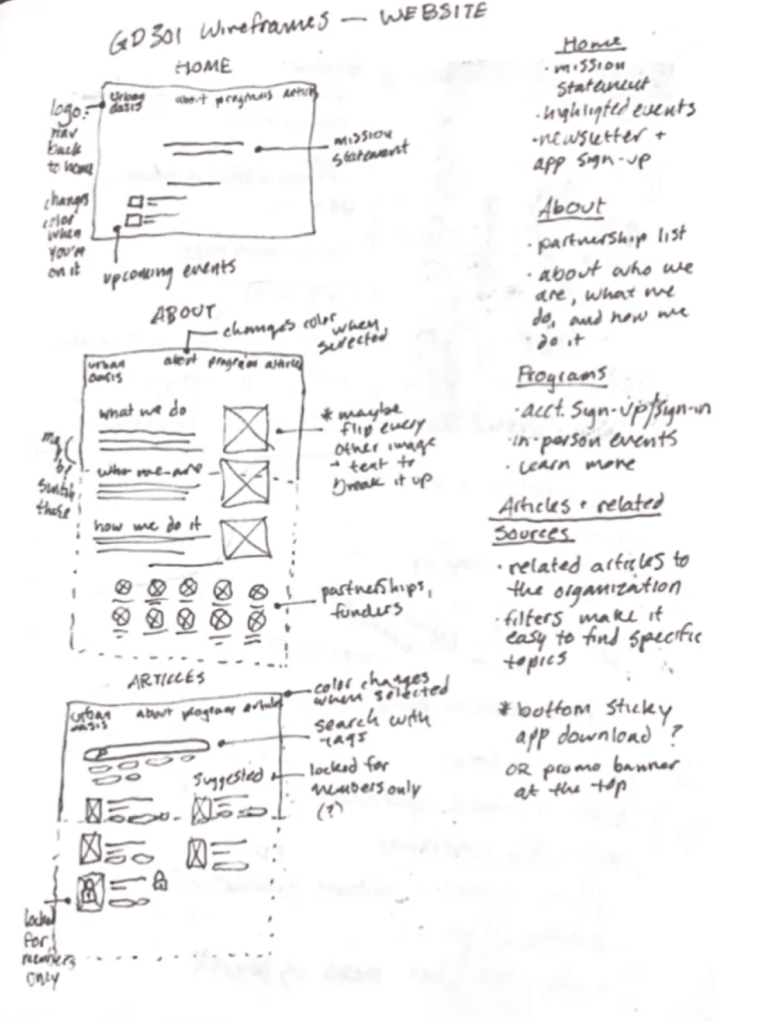 GD301 Wireframes — WEBSITE
HOME
logo:
nav
back
to home
urban
oasis
about programs articles
mission
statement
changes
color
when
you're
on it
upcoming events
ABOUT
changes color when
selected
urban
oasis
about programs articles
what we do
who we are
how we do it
switch
these
* maybe
flip every
other image
+ text to
break it up
partnerships,
funders
ARTICLES
color changes
when selected
urban
oasis
about program articles
search with
tags
Suggested
locked for
members only
(?)
locked
for
members
only
Home
· mission
statement
· highlighted events
· newsletter +
app sign-up
About
· partnership list
· about who we
are, what we
do, and how we
do it
Programs
· acct. sign-up/sign-in
· in-person events
· Learn more
Articles + related
Sources
· related articles to
the organization
· filters make it
easy to find specific
topics
* bottom sticky
app download ?
OR promo banner
at the top